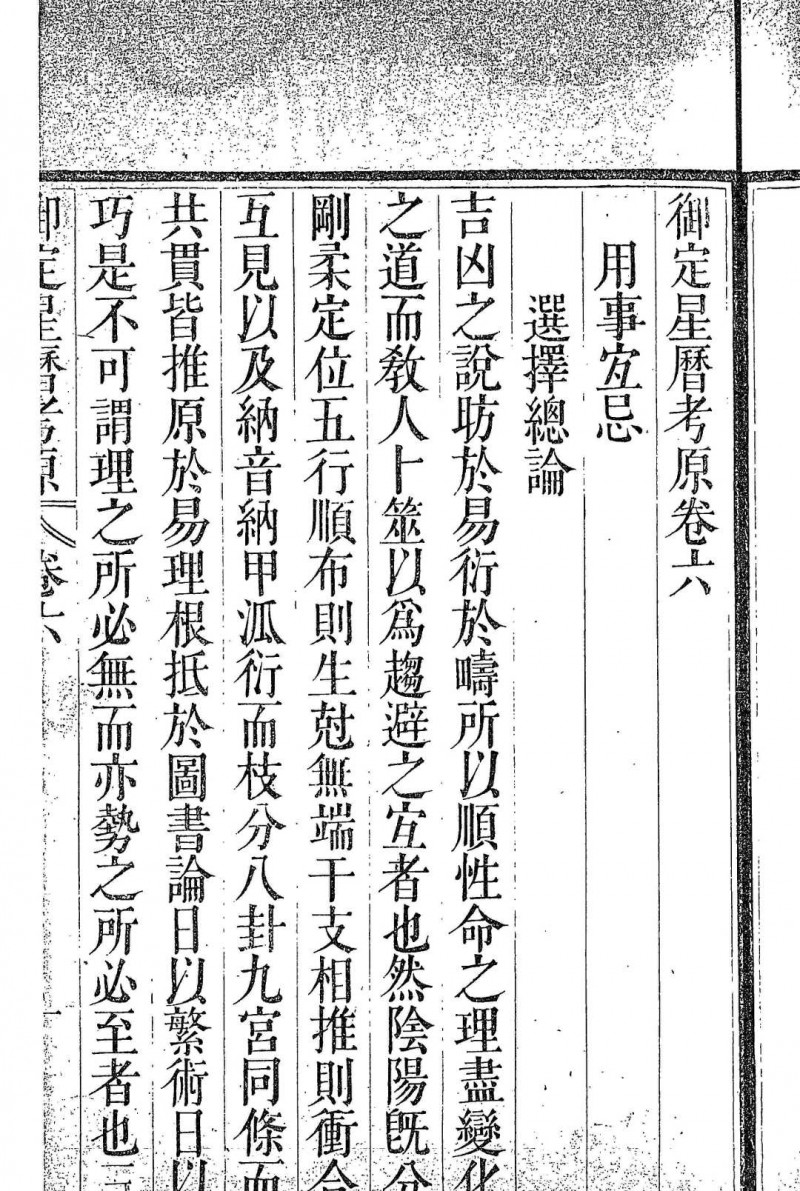 御定星曆考原卷六
用事宜忌
選擇總論
吉凶之說昉於易衍於疇所以順性命之理盡變化
之道而教人卜筮以為趨避之宜者也然陰陽既分
剛柔定位五行順布則生尅無端干支相推則衝合
互見以及納音納甲派衍而枝分八卦九宮同條而
共貫皆推原於易理根抵於圖書論日以繁術日以
巧是不可謂理之所必無而亦勢之所必至者也三
御定星曆考原 卷六 一